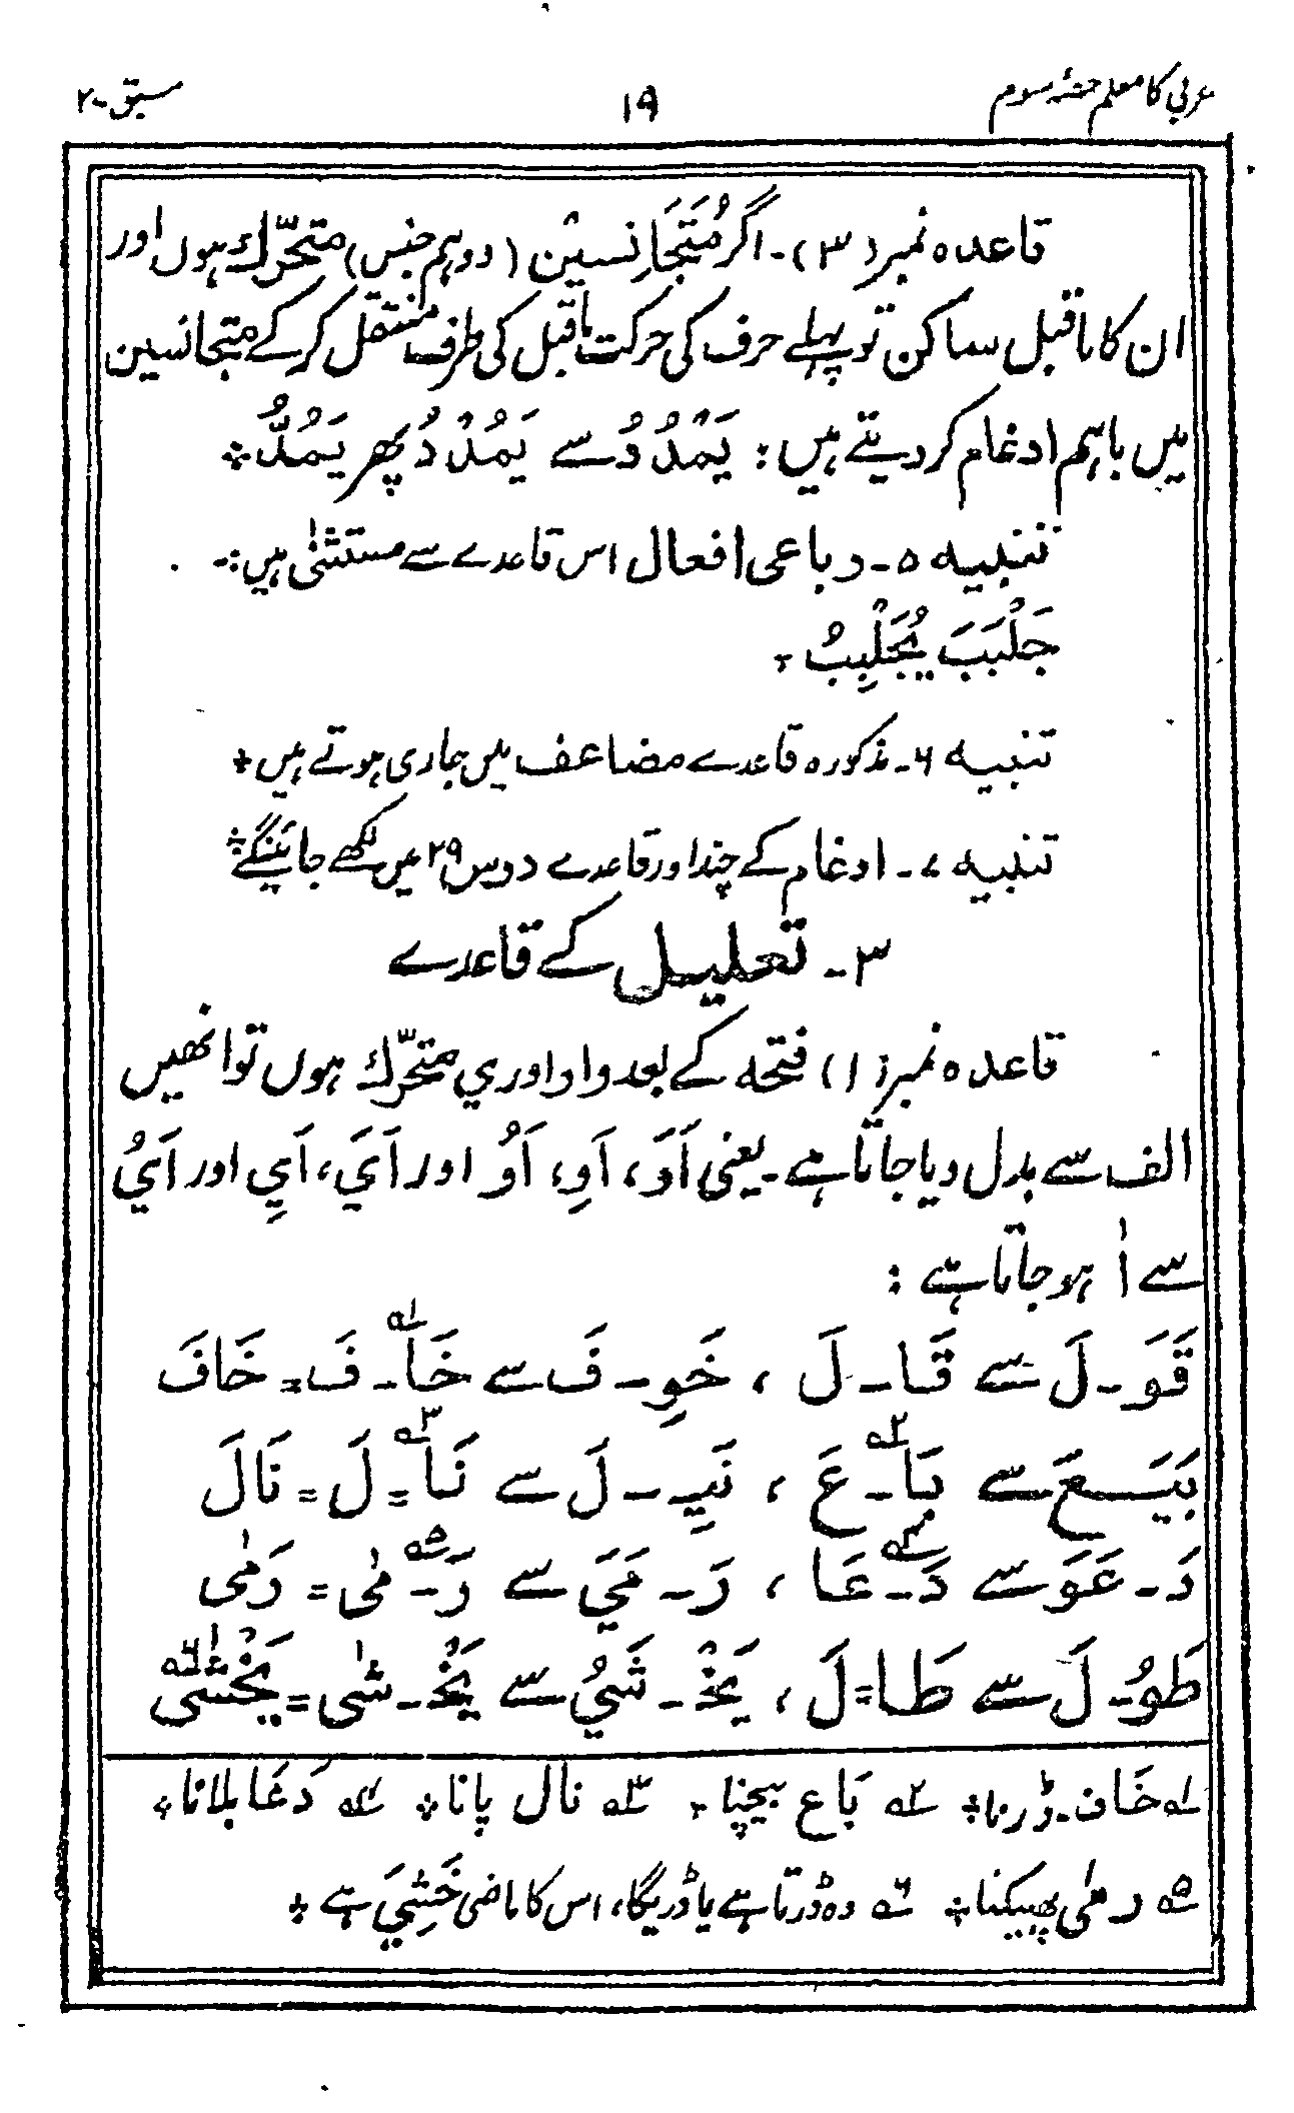 عربی کا معلم حصّۂ سوم
۱۹
سبق-۲
قاعدہ نمبر (۳)۔ اگر مُتَجَانِسین (دو ہم جنس) متحرّک ہوں اور
ان کا ماقبل ساکن تو پہلے حرف کی حرکت ماقبل کی طرف منتقل کر کے متجانسین
میں باہم ادغام کر دیتے ہیں: یَمْدُدُ سے یَمُدْدُ پھر یَمُدُّ ÷
تنبیہ ۵۔ رباعی افعال اس قاعدے سے مستثنیٰ ہیں:۔
جَلْبَبَ يُجَلْبِبُ ۔
تنبیہ ۶۔ مذکورہ قاعدے مضاعف میں جاری ہوتے ہیں ÷
تنبیہ ۷۔ ادغام کے چند اور قاعدے درس ۲۹ میں لکھے جائینگے ÷
۳۔ تعلیل کے قاعدے
قاعدہ نمبر (۱) فتحہ کے بعد واو اور ي متحرّک ہوں تو انھیں
الف سے بدل دیا جاتا ہے۔ یعنی اَوَ، اَوِ، اَوُ اور اَيَ، اَيِ اور اَيُ
سے اٰ ہو جاتا ہے :
قَوَ۔لَ سے قَا۔لَ ، خَوِ۔فَ سے خَا۱؎۔فَ = خَافَ
بَيَعَ سے بَا۲؎۔عَ ، نَيِ۔لَ سے نَا۳؎=لَ = نَالَ
دَ۔عَوَ سے دَ۴؎۔عَا ، رَ۔مَيَ سے رَ۵؎۔مٰی = رَمٰی
طَوُ۔لَ سے طَا=لَ ، يَخْ۔شَيُ سے يَخْ۔شٰی = يَخْشٰی۶؎
۱؎ خَاف۔ ڈرنا ÷ ۲؎ بَاع بیچنا ۔ ۳؎ نال پانا ÷ ۴؎ دَعَا بلانا ÷
۵؎ رمٰی پھینکنا ÷ ۶؎ وہ ڈرتا ہے یا ڈریگا، اس کا ماضی خَشِيَ ہے ÷